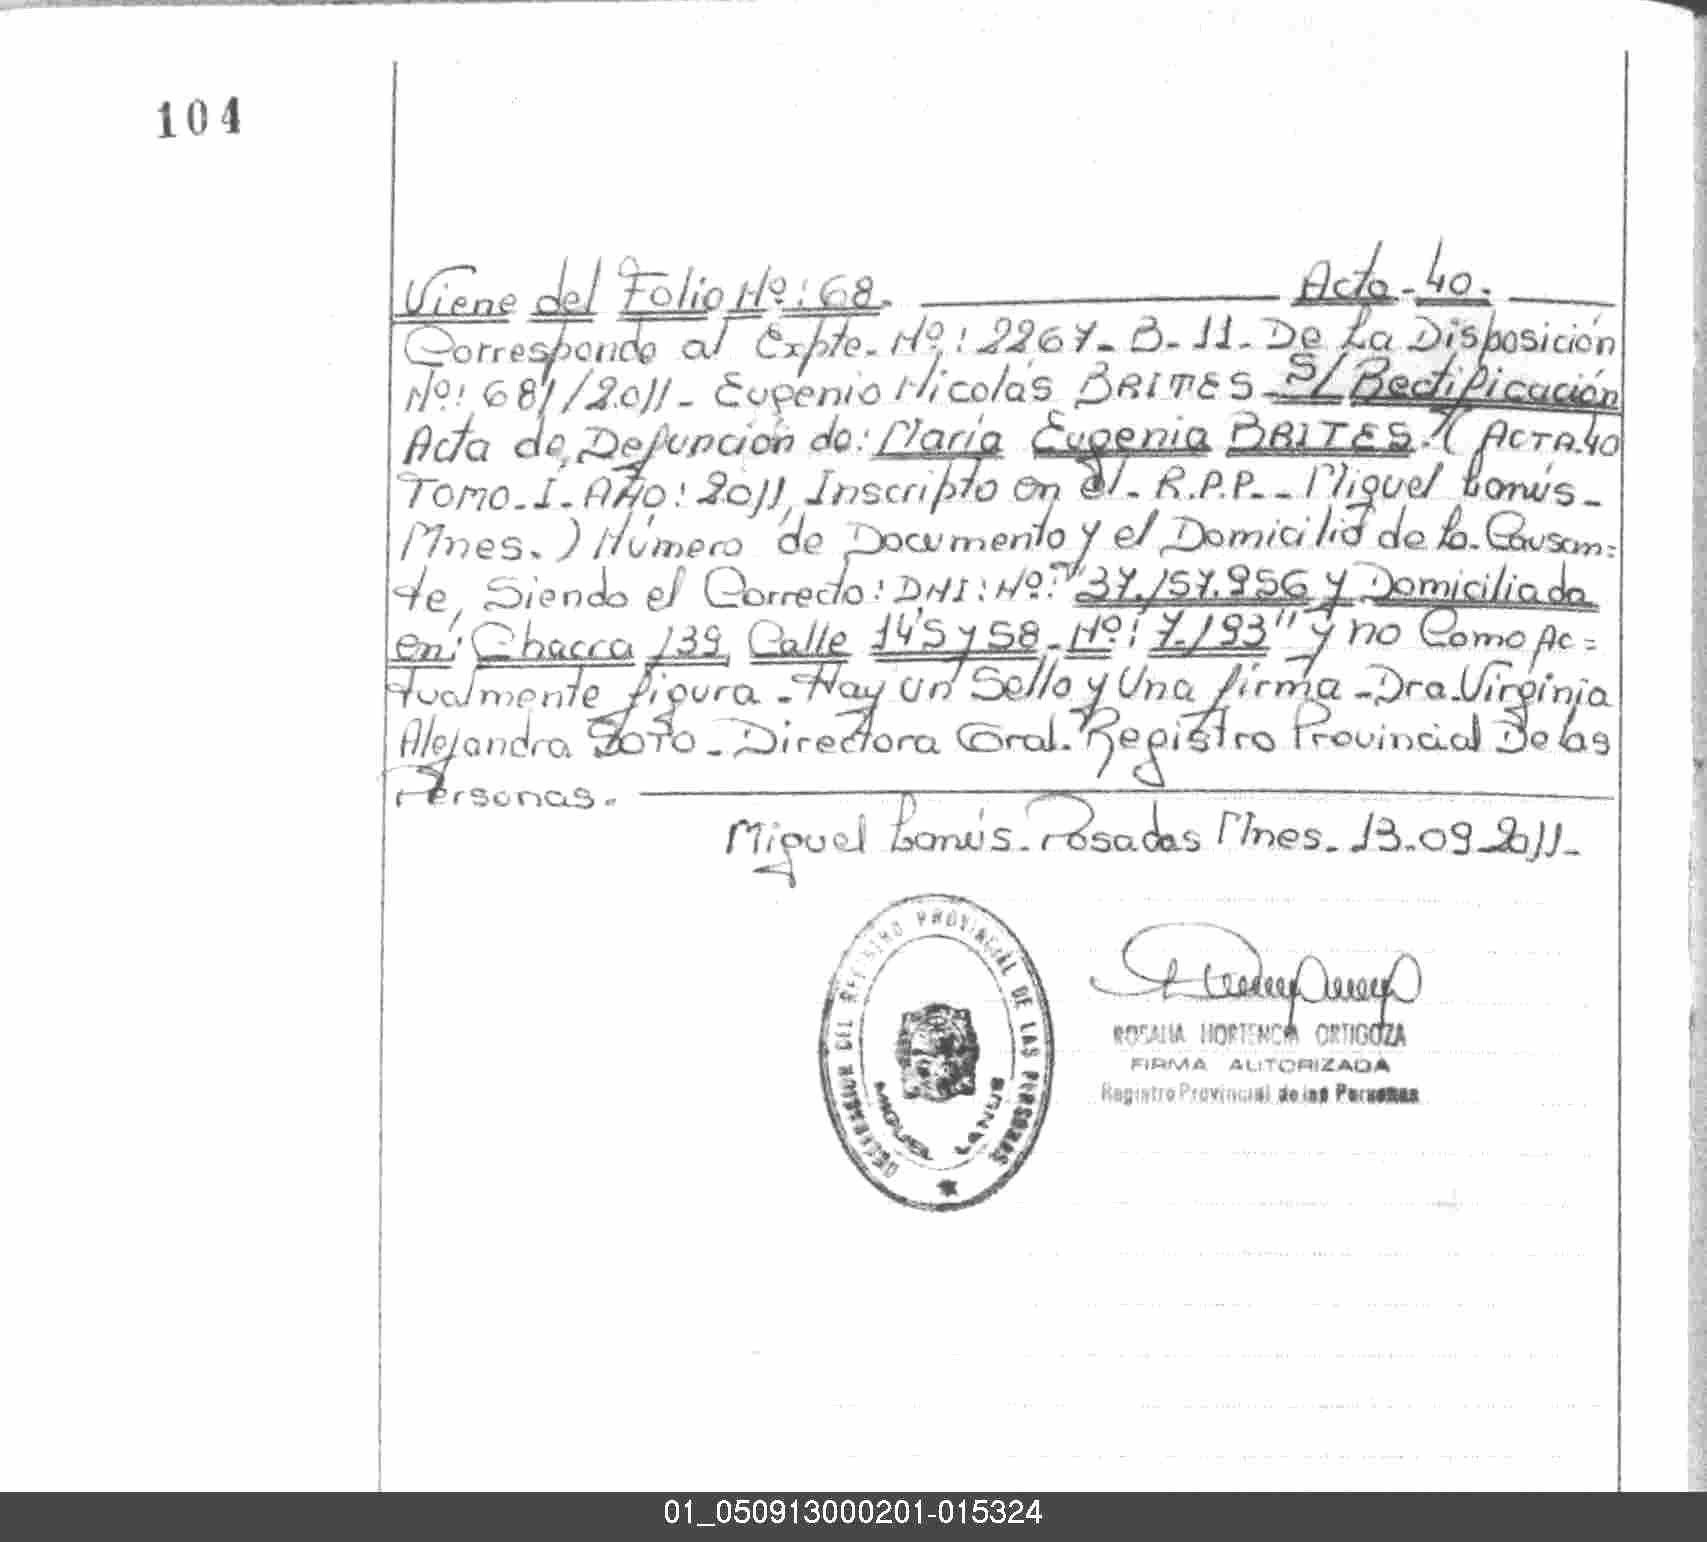 104
Viene del Folio Nº: 68. Acta - 40.
Corresponde al Expte. Nº: 2267. B - 11 - De La Disposición
Nº: 681/2011 - Eugenio Nicolás BRITES - S/ Rectificación
Acta de Defunción de: María Eugenia BRITES. (ACTA.40
TOMO. I. AÑO: 2011, Inscripto en el - R.P.P. - Miguel Lanús -
Mnes. ) Número de Documento y el Domicilio de la Causan=
te, Siendo el Correcto: DNI: Nº: "37.157.956 y Domiciliada
en: Chacra 139 Calle 145 y 58 - Nº: 7.193" y no Como Ac=
tualmente figura - Hay un Sello y Una firma - Dra. Virginia
Alejandra SOTO - Directora Gral. Registro Provincial De las
Personas.
Miguel Lanús - Posadas Mnes. 13.09.2011 -
DELEGACION DEL REGISTRO PROVINCIAL DE LAS PERSONAS
MIGUEL LANUS
ROSALIA HORTENCIA ORTIGOZA
FIRMA AUTORIZADA
Registro Provincial de las Personas
01_050913000201-015324